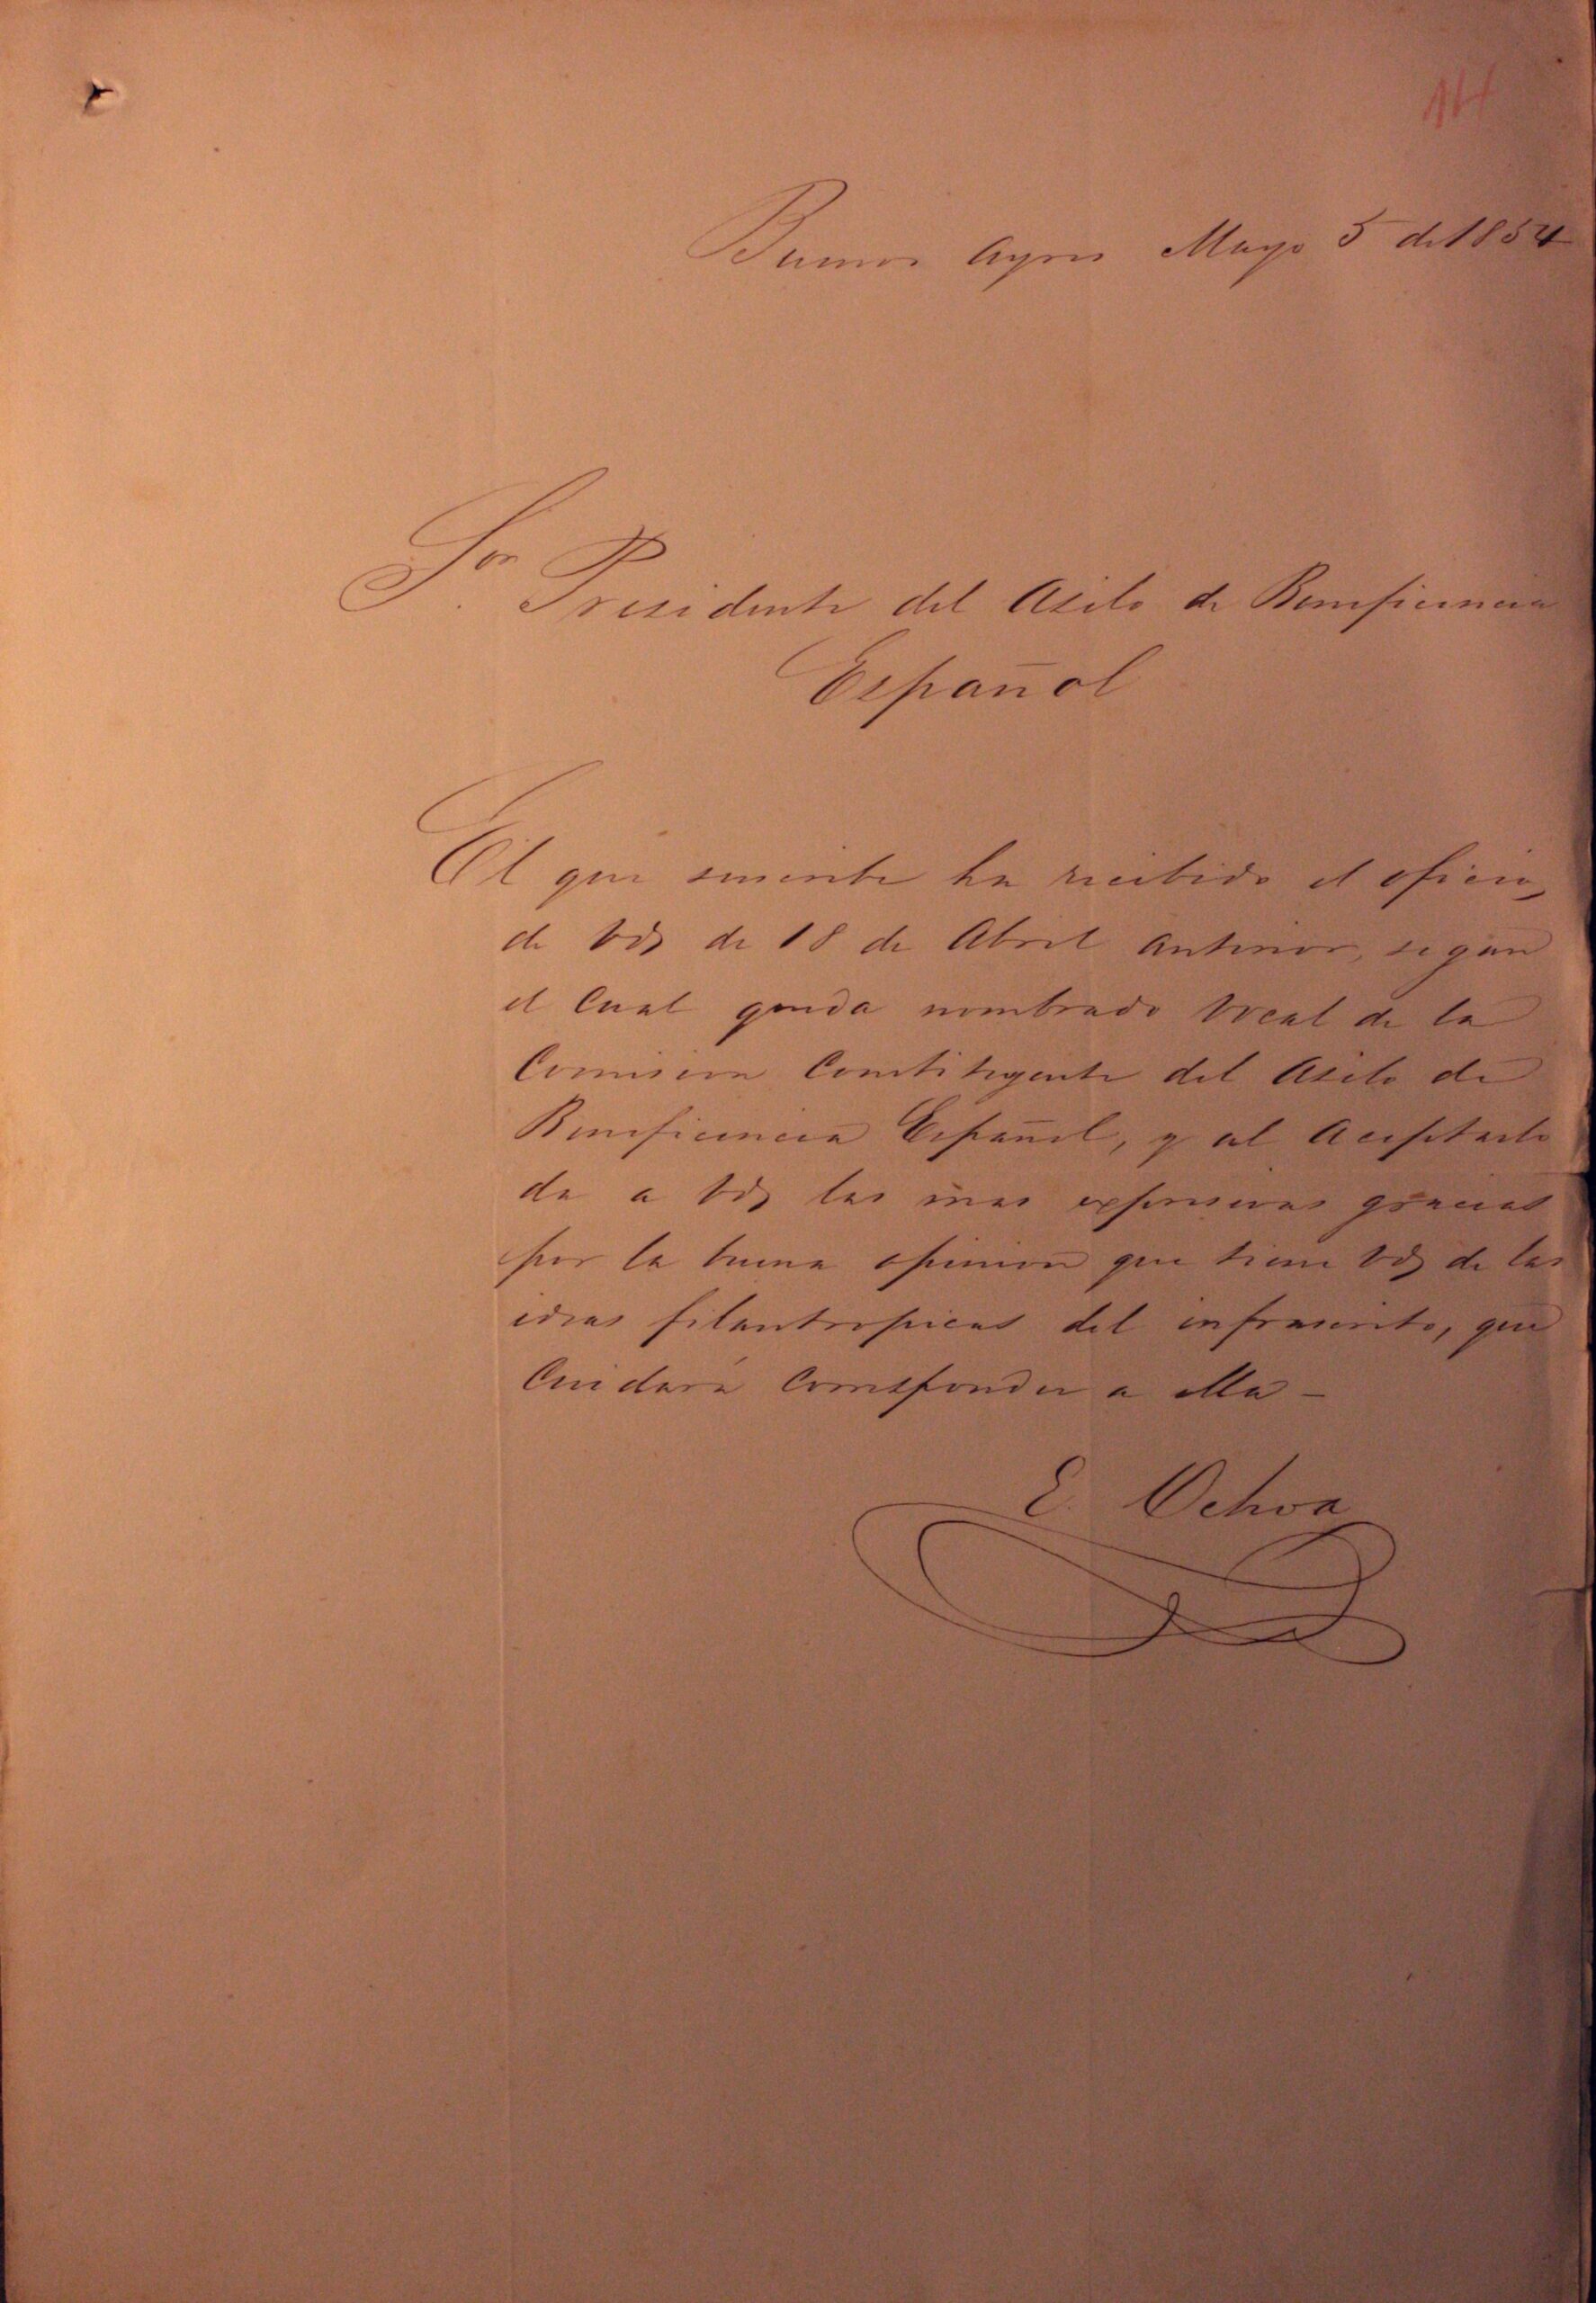 14
Buenos Ayres Mayo 5 de 1854
Sor. Presidente del Asilo de Beneficencia
Español
El que suscribe ha recibido el oficio
de Vds de 18 de Abril anterior, segun
el Cual queda nombrado Vocal de la
Comision Constituyente del Asilo de
Beneficencia Español, y al Aceptarlo
da a Vds las mas expresivas gracias
por la buena opinion que tiene Vds de las
ideas filantropicas del infrascrito, que
Cuidará Corresponder a ella -
E. Ochoa